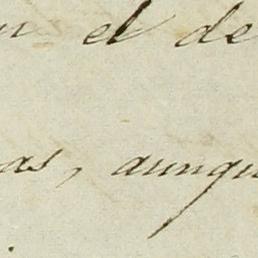 el de
as, aunqu